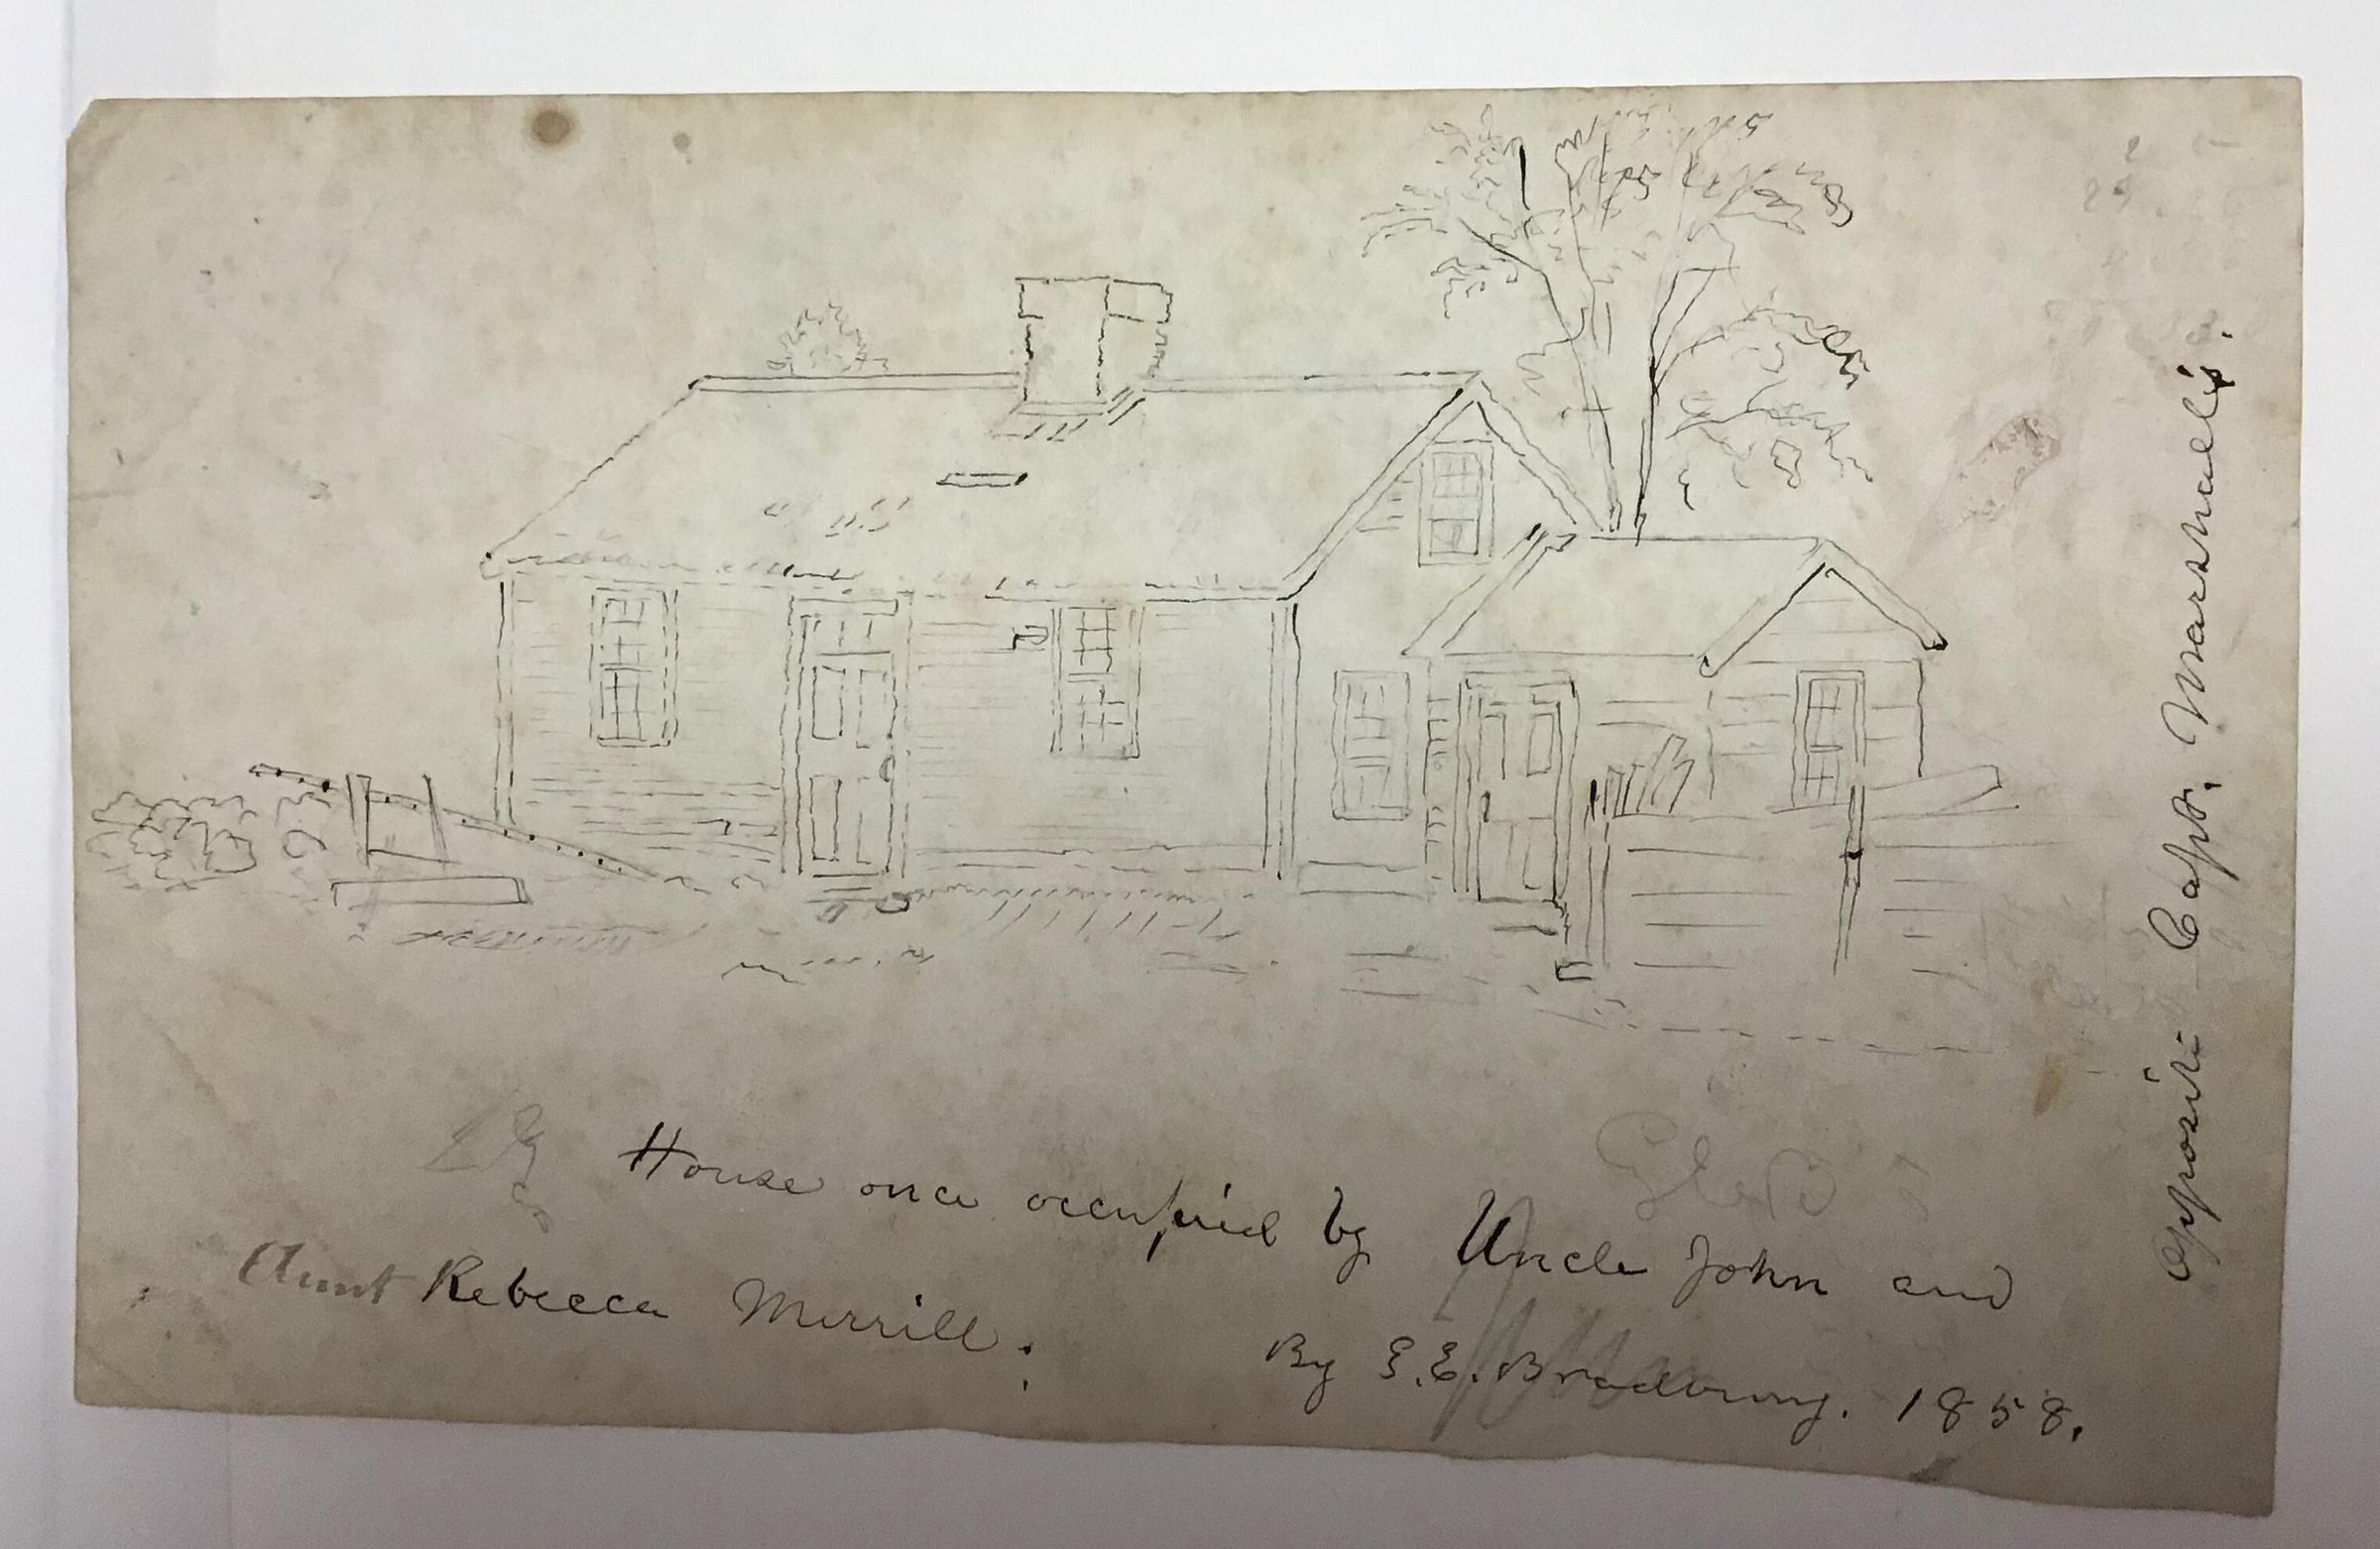 House once occupied by Uncle John and
Aunt Rebecca Merrill.
By E.E. Bradbury. 1858.
Opposite Capt. Marshall's.